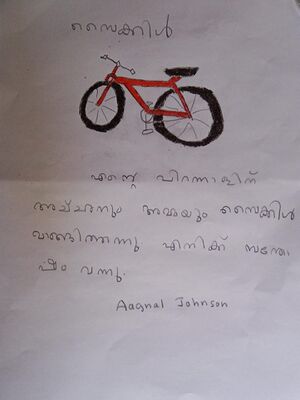 സൈക്കിൾ
എന്റെ പിറന്നാളിന്
അച്ചനും അമ്മയും സൈക്കിൾ
വാങ്ങിതന്നു എനിക്ക് സന്തോ
ഷം വന്നു.
Aagnal Johnson